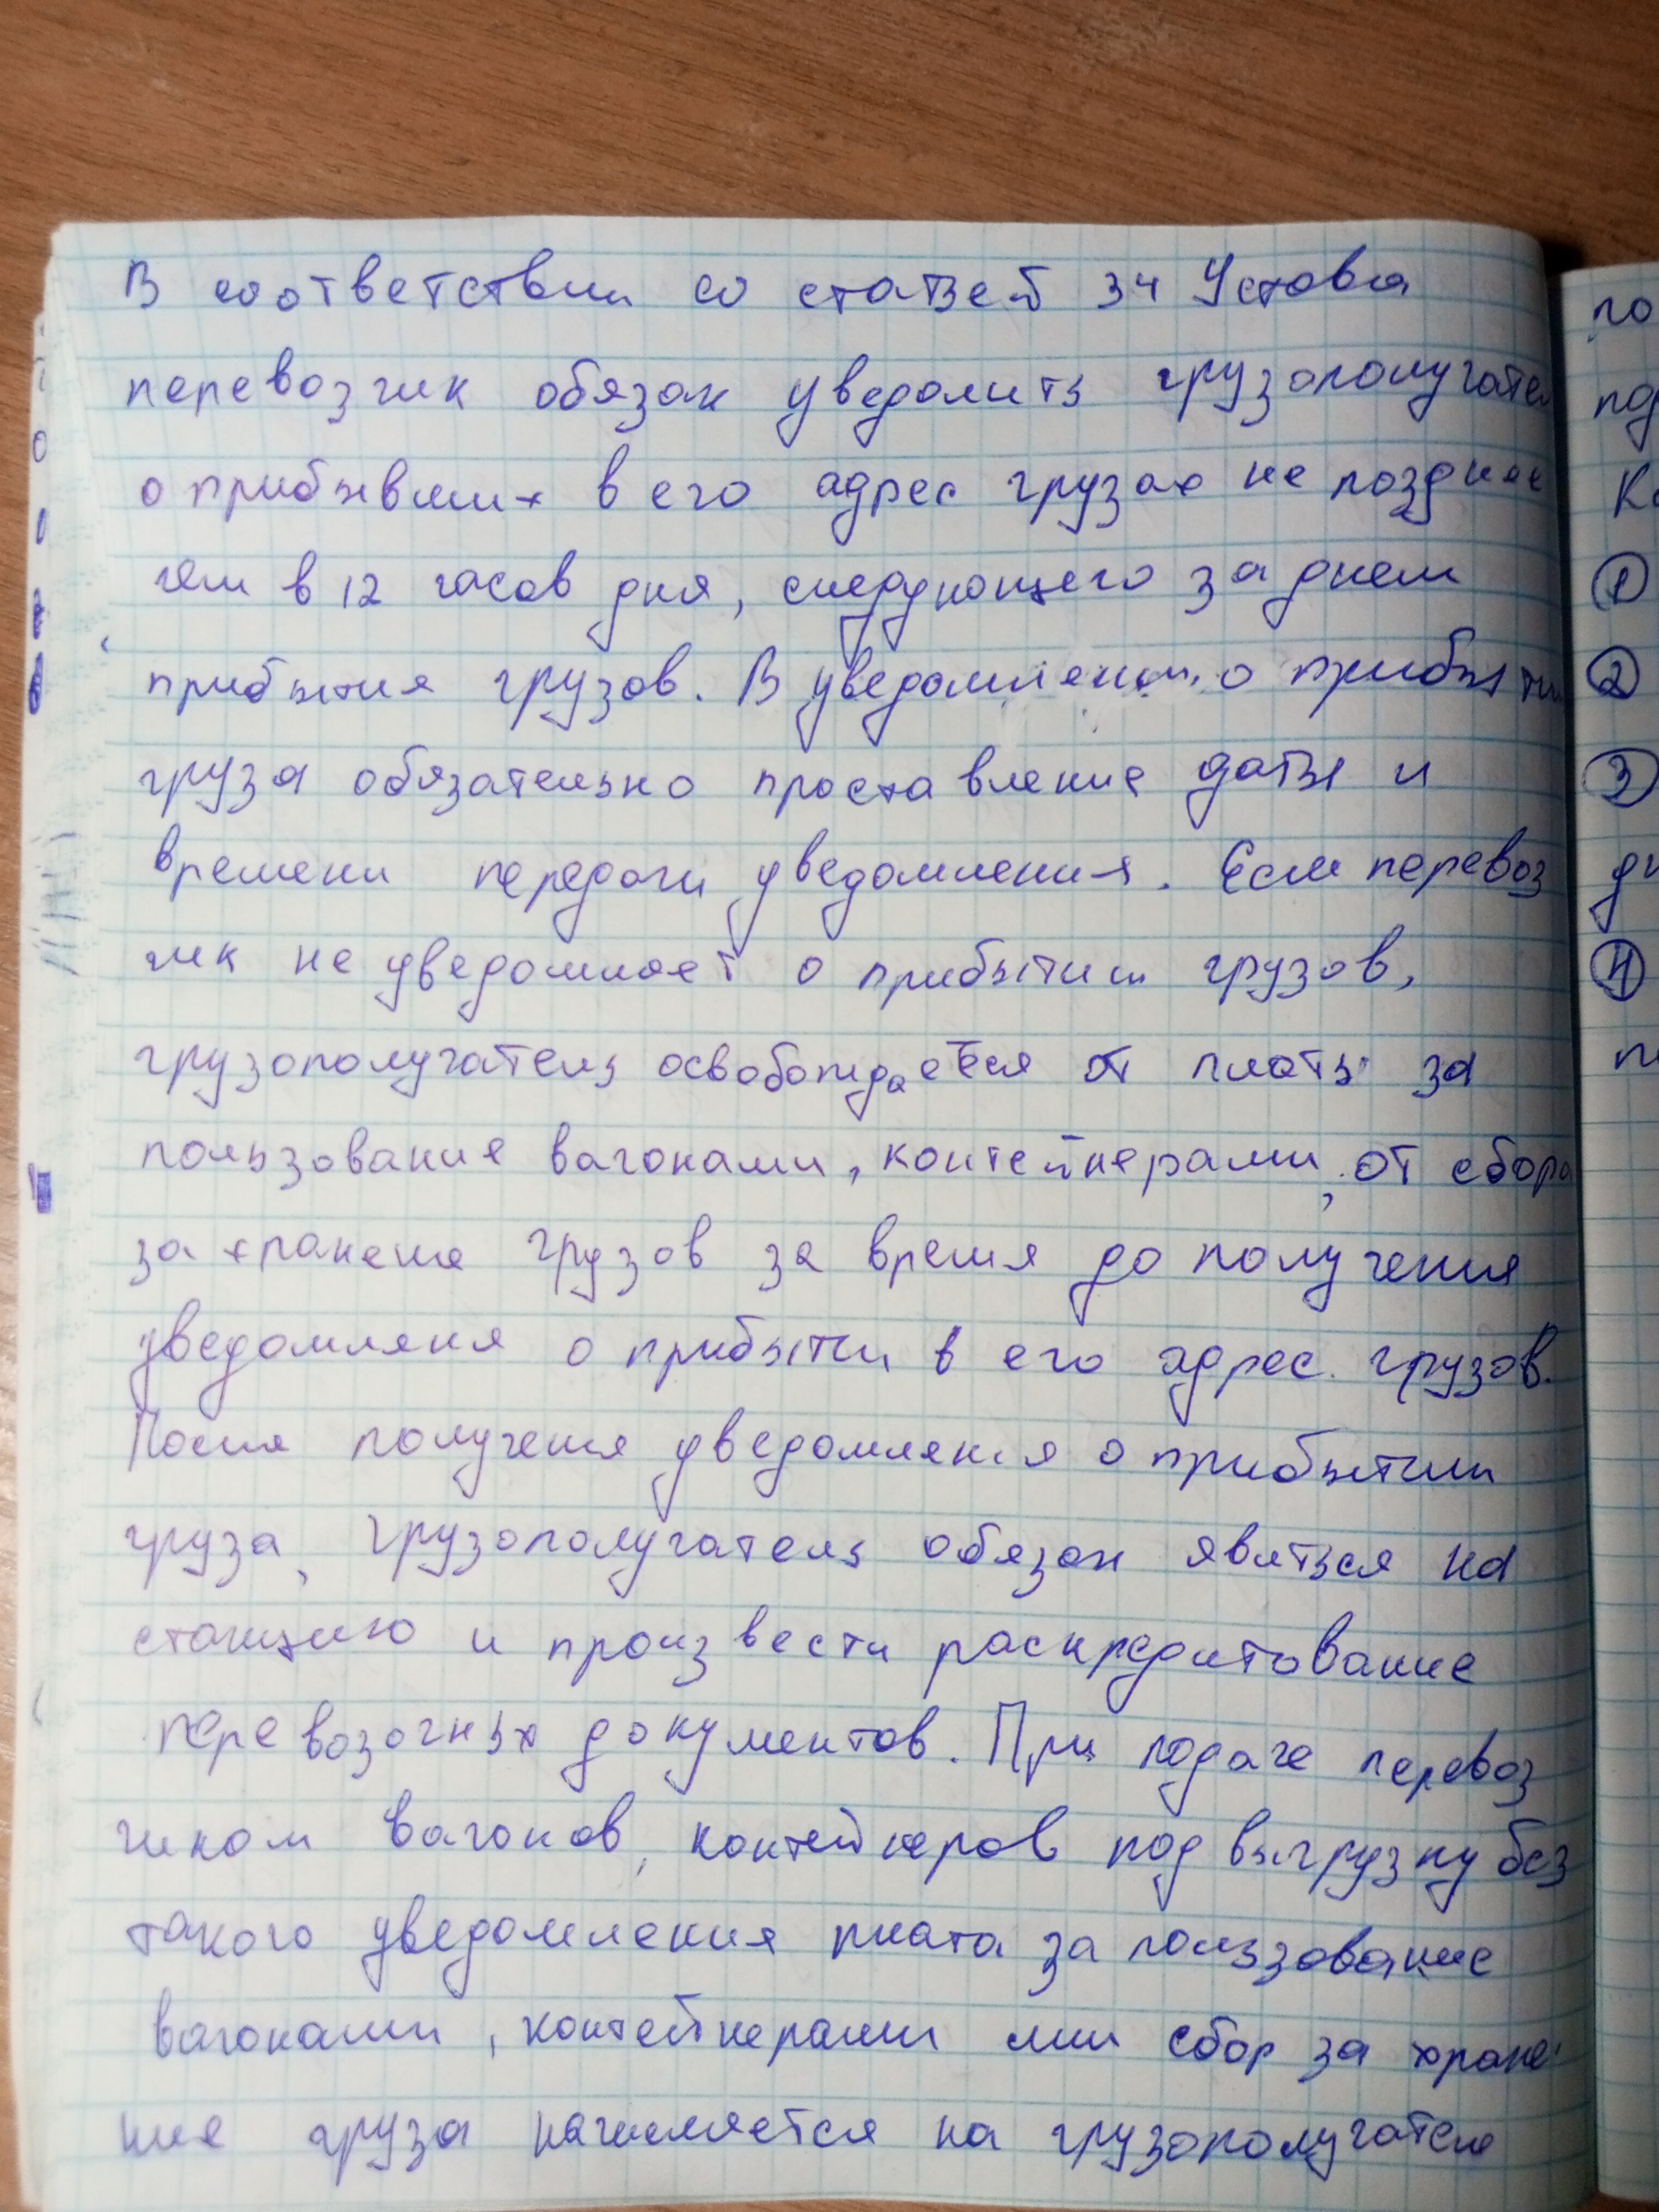 В соответствии со статьей 34 Устава
перевозчик обязан уведомить грузополучател
о прибывших в его адрес грузах не позднее
чем в 12 часов дня, следующего за днем
прибытия грузов. В уведомлении о прибытии
груза обязательно проставление даты и
времени передачи уведомления. Если перевоз
чик не уведомляет о прибытии грузов,
грузополучатель освобождается от платы за
пользование вагонами, контейнерами, от сбора
за хранение грузов за время до получения
уведомленя о прибытии в его адрес грузов.
После получения уведомления о прибытии
груза, грузополучатель обязан явиться на
станцию и произвести раскредитование
перевозочных документов. При подаче перевоз
чиком вагонов, контейнеров под выгрузку без
такого уведомления плата за пользование
вагонами, контейнерами или сбор за хране
ние груза начисляется на грузополучателя
по
под
Ко
①
②
③
ди
④